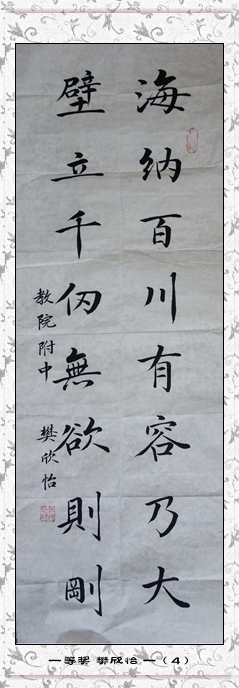 海纳百川有容乃大
壁立千仞無欲則剛
教院附中 樊欣怡
一等奖 樊欣怡 一（4）